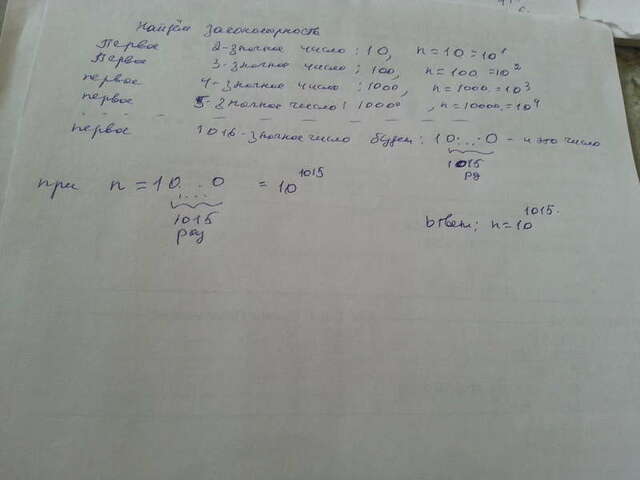 Найдём закономерность
Первое 2-значное число: 10, n=10=10¹
Первое 3-значное число; 100, n=100=10²
первое 4-значное число: 1000, n=1000=10³
первое 5-значное число: 10000, n=10000=10⁴
первое 1016-значное число будет: 10...0 - и это число
1015
раз
при n=10...0 = 10¹⁰¹⁵
1015
раз
Ответ: n=10¹⁰¹⁵.